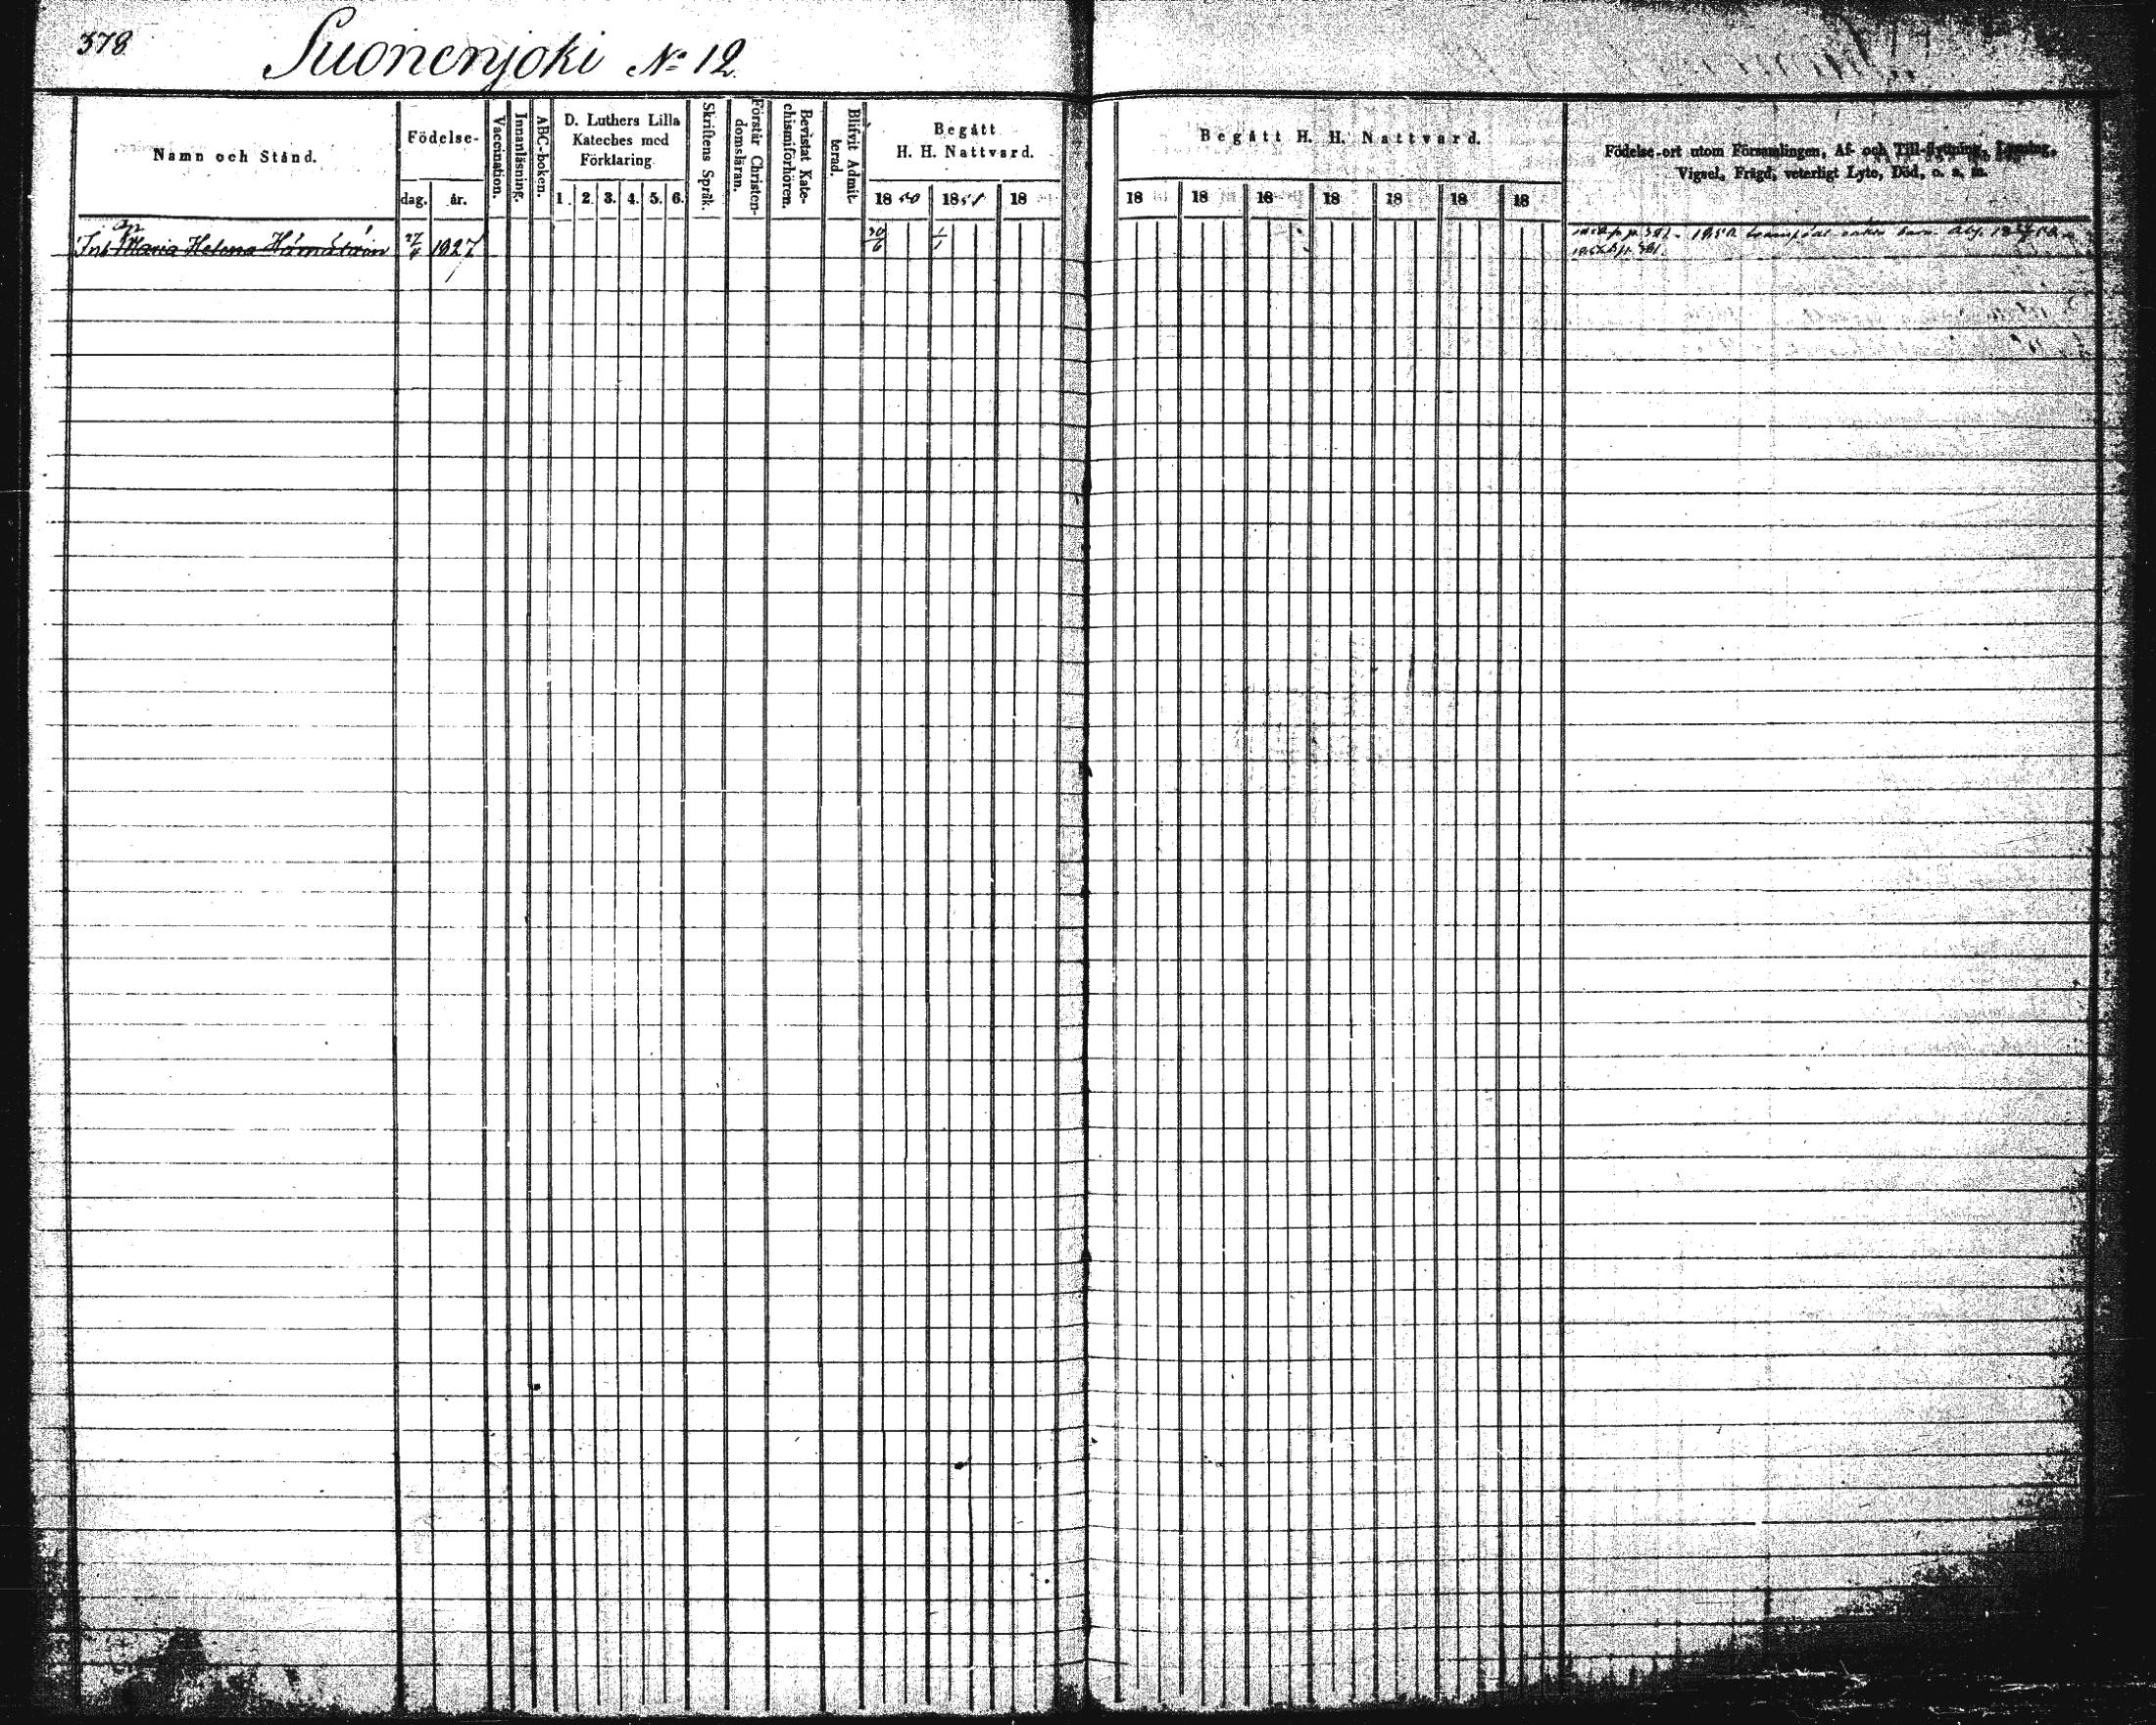 378
Suonenjoki No 12
Namn och Stånd.
Födelse-
dag.
år.
Vaccination.
Innanläsning.
ABC-boken.
D. Luthers Lilla
Kateches med
Förklaring
1. 2. 3. 4. 5. 6.
Skriftens Språk.
Förstår Christen-
domsläran.
Bevistat Kate-
chismiförhören.
Blifvit Admit-
terad.
Begått
H. H. Nattvard.
18 50 18 51 18
Begått H. H. Nattvard.
18 18 18 18 18 18 18
Födelse-ort utom Församlingen, Af- och Till-flyttning, Lysning,
Vigsel, Frägd, veterligt Lyte, Död, o. s. m.
Maria Helena 27/6 1827 30/6 1/1